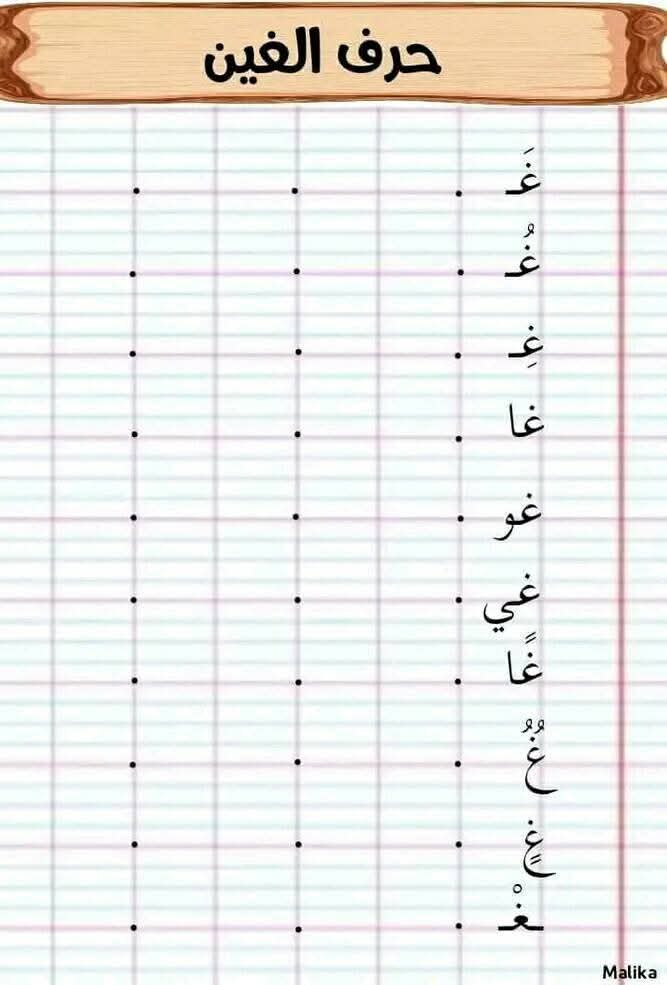 حرف الغين
غَـ
غُـ
غِـ
غا
غو
غي
غًا
غٌ
غٍ
ـغْـ
Malika